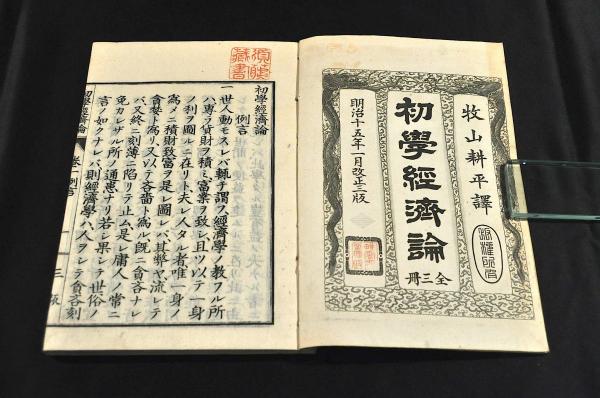 牧山耕平譯
初學經濟論
全三冊
明治十五年一月改正三版
藏書
初學經濟論
例言
一世人動モスレバ輒チ謂フ經濟學ノ教フル所
ハ專ラ貨財ヲ積ミ富業ヲ致シ且ツ以テ一身
ノ利ヲ圖ルニ在リト夫レ人タル者唯一身ノ
爲メニ積財致富ヲ是レ圖レバ其弊ヤ流レテ
貪婪ト爲リ又以テ吝嗇ト爲ル既ニ貪吝ナレ
バ又終ニ刻薄ニ陷リテ止ム是レ庸人ノ常ニ
免カレザル所ノ通患ナリ若シ果シテ世俗ノ
言ノ如クナレバ則經濟學ハ人ヲシテ貪吝刻
初學經濟論 卷一例言 一 三版